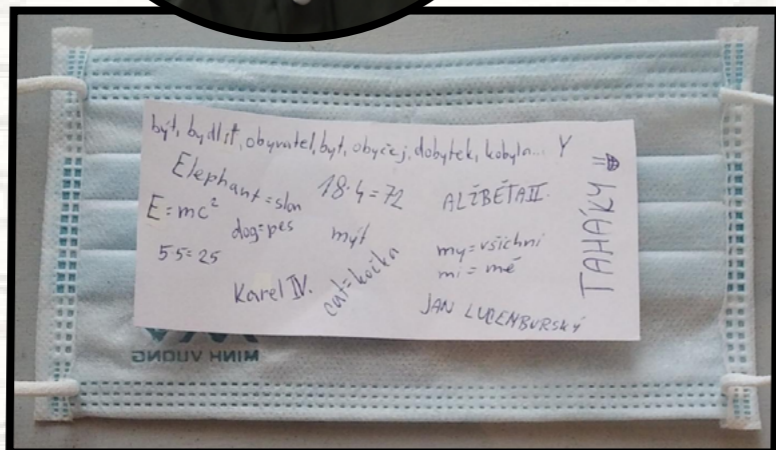 být, bydlit, obyvatel, byt, obyčej, dobytek, kobyla... Y
Elephant = slon
18·4 = 72
ALŽBĚTA II.
E = mc²
dog = pes
mýt
my = všichni
mi = mě
5·5 = 25
Karel IV.
cat = kočka
JAN LUCEMBURSKÝ
TAHÁKY
MINH VUONG